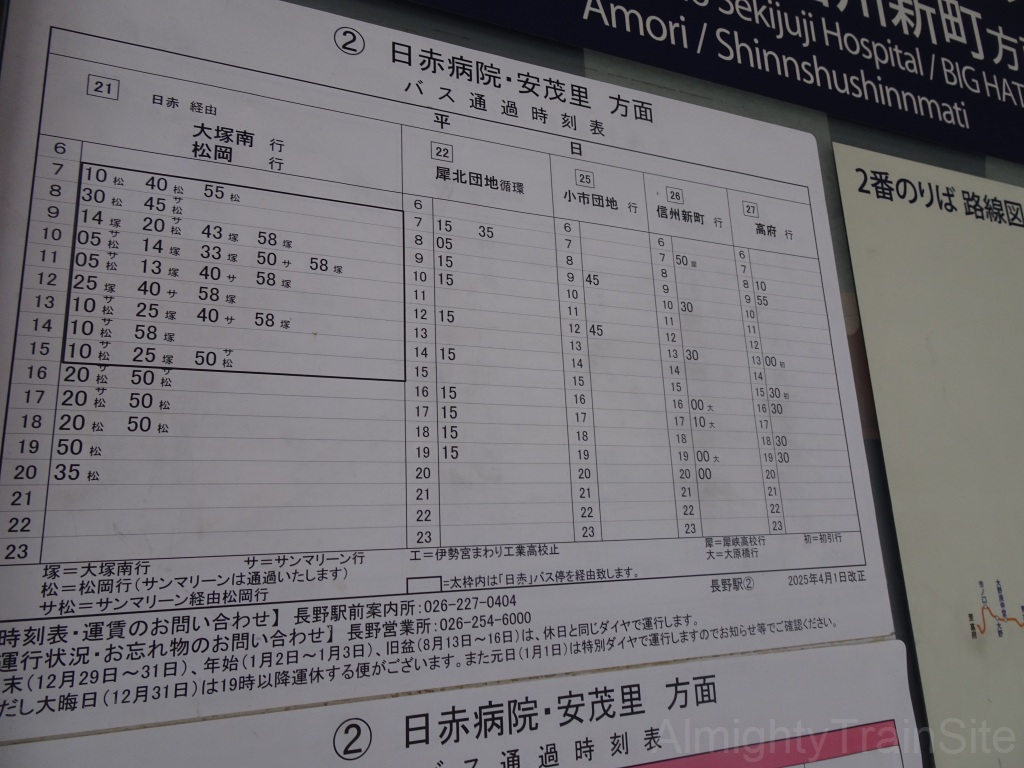 Sekijuji Hospital / BIG HAT
州新町方
Amori / Shinnshushinnmati
② 日赤病院・安茂里 方面
バス通過時刻表
平 日
21 日赤 経由 大塚南 行 松岡 行
22 犀北団地循環
25 小市団地 行
26 信州新町 行
27 高府 行
6
7 10松 40松 55松
8 30松 45サ松
9 14塚 20サ松 43塚 58塚
10 05サ松 14塚 33塚 50サ 58塚
11 05サ松 13塚 40サ 58塚
12 25塚 40サ 58塚
13 10サ松 25塚 40サ 58塚
14 10サ松 58塚
15 10サ松 25塚 50サ松
16 20サ松 50サ松
17 20サ松 50松
18 20松 50松
19 50松
20 35松
21
22
23
6
7 15 35
8 05
9 15
10 15
11
12 15
13
14 15
15
16 15
17 15
18 15
19 15
20
21
22
23
6
7
8
9 45
10
11
12 45
13
14
15
16
17
18
19
20
21
22
23
6
7 50犀
8
9
10 30
11
12
13 30
14
15
16 00大
17 10大
18
19 00大
20 00
21
22
23
6
7
8 10
9 55
10
11
12
13 00初
14
15 30初
16 30
17
18 30
19 30
20
21
22
23
塚＝大塚南行 サ＝サンマリーン行 エ＝伊勢宮まわり工業高校止 犀＝犀峡高校行 初＝初引行
松＝松岡行(サンマリーンは通過いたします) 大＝大原橋行
サ松＝サンマリーン経由松岡行 ＝太枠内は「日赤」バス停を経由致します。 長野駅② 2025年4月1日改正
時刻表・運賃のお問い合わせ】長野駅前案内所:026-227-0404
運行状況・お忘れ物のお問い合わせ】長野営業所:026-254-6000
末(12月29日～31日)、年始(1月2日～1月3日)、旧盆(8月13日～16日)は、休日と同じダイヤで運行します。
だし大晦日(12月31日)は19時以降運休する便がございます。また元日(1月1日)は特別ダイヤで運行しますのでお知らせ等でご確認ください。
② 日赤病院・安茂里 方面
バス通過時刻表
2番のりば 路線図
AlmightyTrainSite